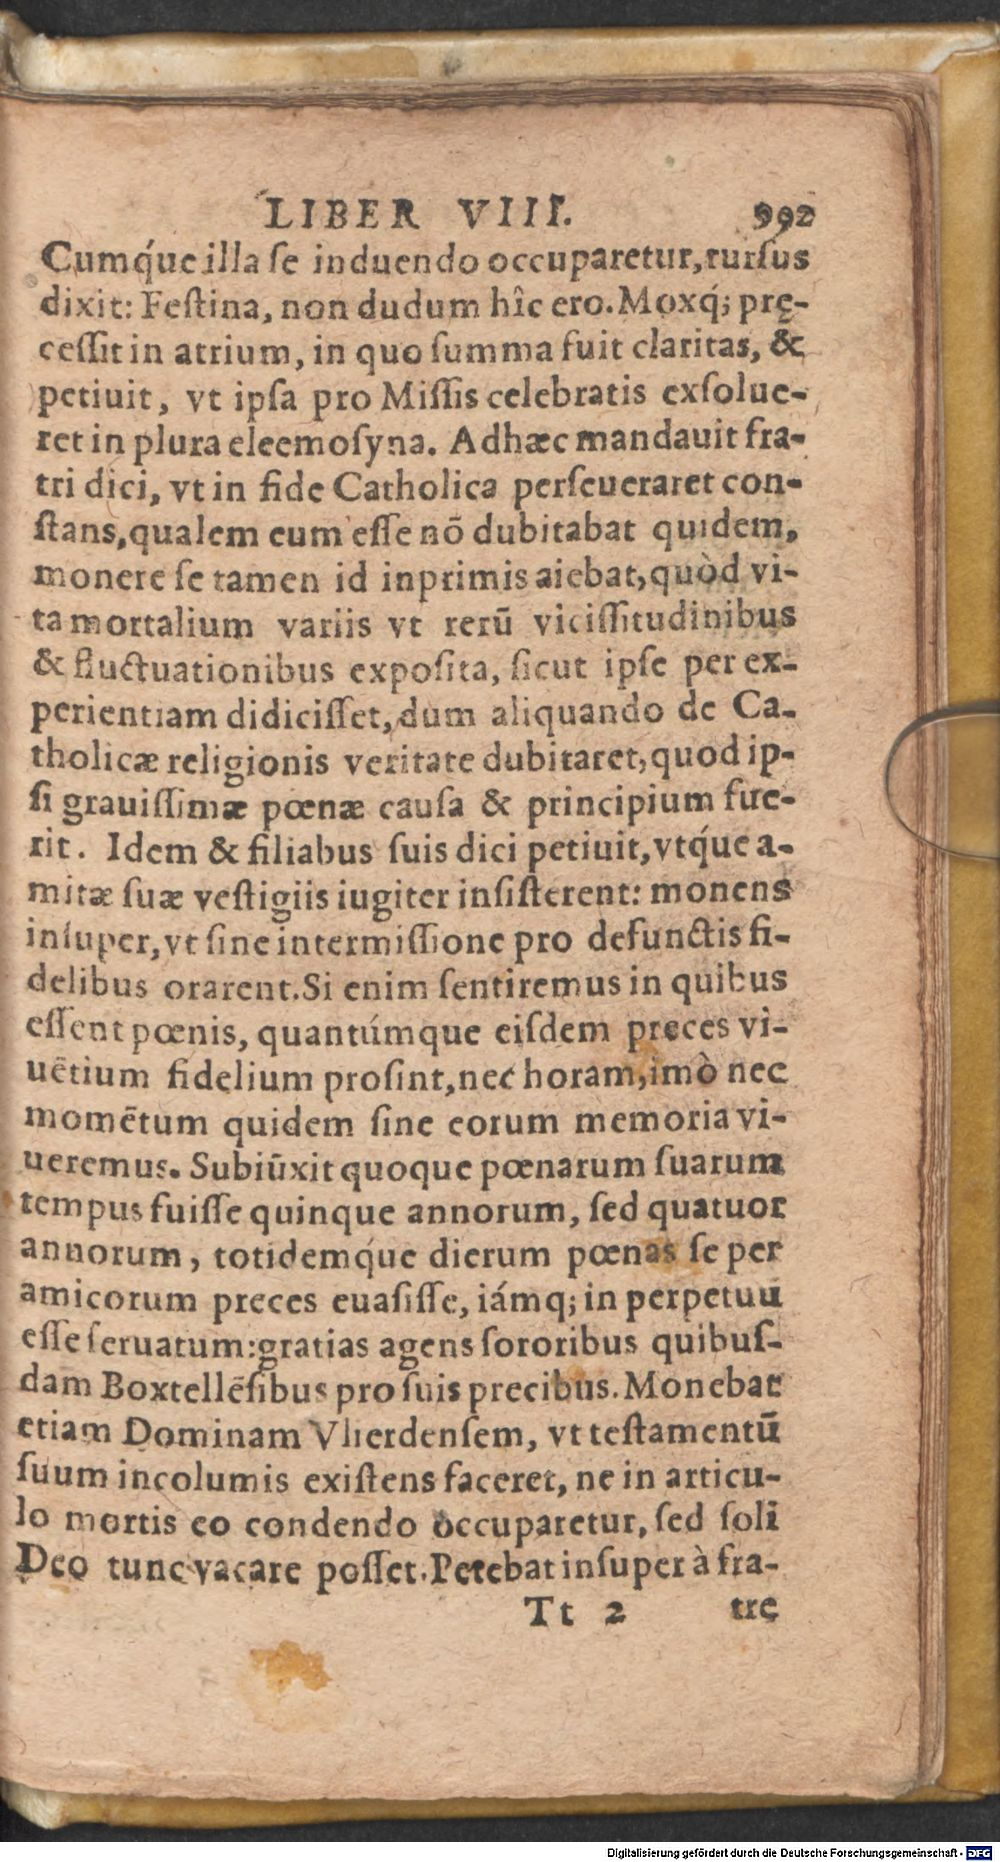 LIBER VIII. 992
Cumq́ue illa ſe induendo occuparetur, rurſus
dixit: Feſtina, non dudum hîc ero. Moxq́; prę-
ceſſit in atrium, in quo ſumma fuit claritas, &
petiuit, vt ipſa pro Miſſis celebratis exſolue-
ret in plura eleemoſyna. Adhæc mandauit fra-
tri dici, vt in fide Catholica perſeueraret con-
ſtans, qualem eum eſſe nō dubitabat quidem,
monere ſe tamen id inprimis aiebat, quòd vi-
ta mortalium variis vt rerū viciſſitudinibus
& fluctuationibus expoſita, ſicut ipſe per ex-
perientiam didiciſſet, dum aliquando de Ca-
tholicæ religionis veritate dubitaret, quod ip-
ſi grauiſſimæ pœnæ cauſa & principium fue-
rit. Idem & filiabus ſuis dici petiuit, vtq́ue a-
mitæ ſuæ veſtigiis iugiter inſiſterent: monens
inſuper, vt ſine intermiſſione pro defunctis fi-
delibus orarent. Si enim ſentiremus in quibus
eſſent pœnis, quantúmque eiſdem preces vi-
uētium fidelium proſint, nec horam, imò nec
momētum quidem ſine eorum memoria vi-
ueremus. Subiūxit quoque pœnarum ſuarum
tempus fuiſſe quinque annorum, ſed quatuor
annorum, totidemq́ue dierum pœnas ſe per
amicorum preces euaſiſſe, iámq; in perpetuū
eſſe ſeruatum: gratias agens ſororibus quibuſ-
dam Boxtellēſibus pro ſuis precibus. Monebat
etiam Dominam Vlierdenſem, vt teſtamentū
ſuum incolumis exiſtens faceret, ne in articu-
lo mortis eo condendo occuparetur, ſed ſoli
Deo tunc vacare poſſet. Petebat inſuper à fra-
Tt 2 tre
Digitalisierung gefördert durch die Deutsche Forschungsgemeinschaft - DFG